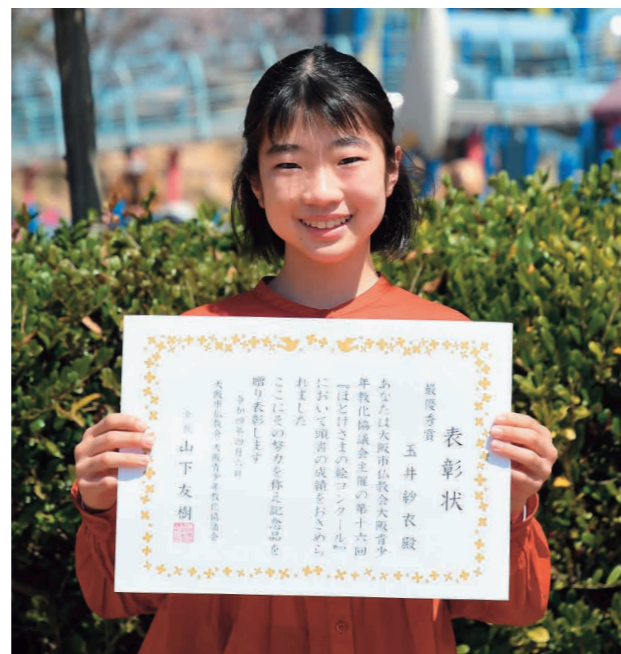 表彰状
最優秀賞
玉井紗衣殿
あなたは大阪市仏教会大阪青少
年教化協議会主催の第十六回
『ほとけさまの絵コンクール』
において頭書の成績をおさめら
れました
ここにその努力を称え記念品を
贈り表彰します
令和四年四月六日
大阪市仏教会 大阪青少年教化協議会
会長 山下友樹